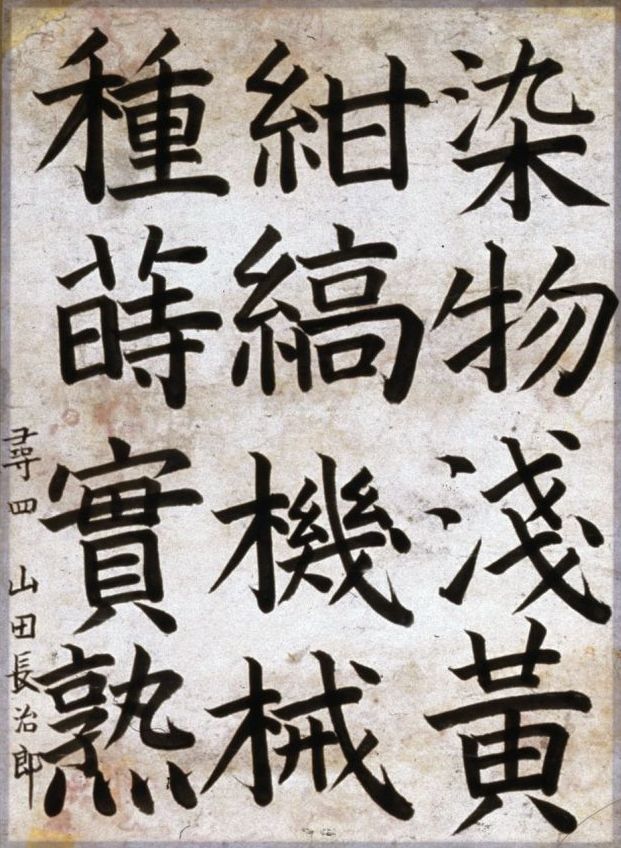 染物淺黃
紺縞機械
種蒔實熟
尋四 山田長治郎